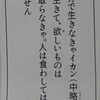 で生きなきゃイカン（中略
生きて、欲しいものは
取らなきゃ。人は食わしては
せん